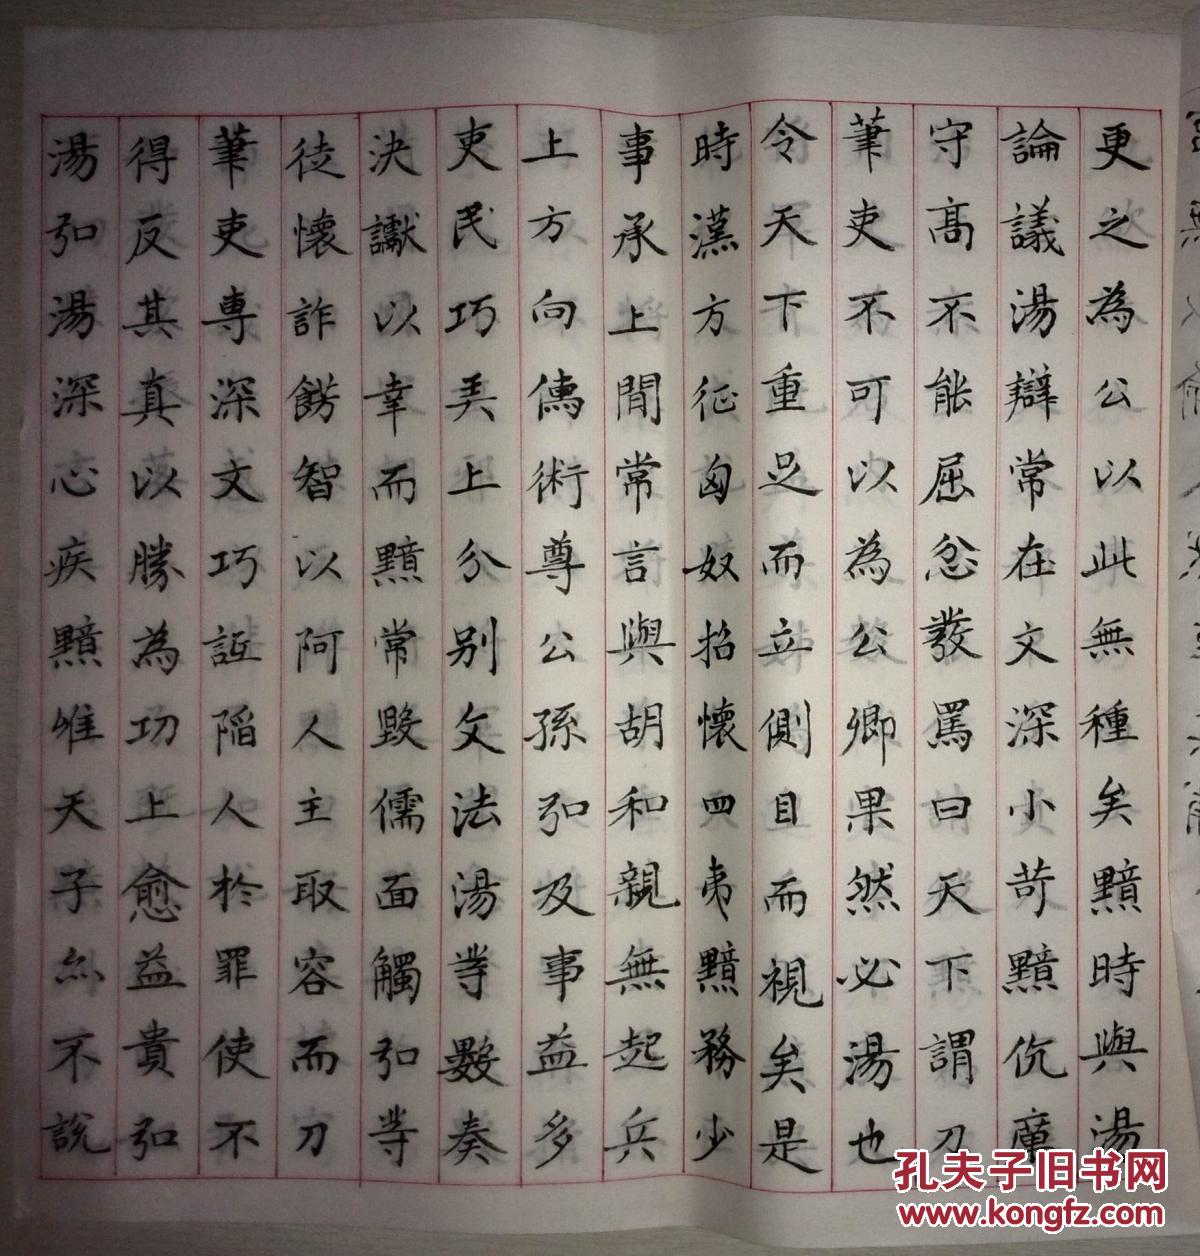 更之為公以此無種矣黯時與湯
論議湯辯常在文深小苛黯伉厲
守高不能屈忿發罵曰天下謂刀
筆吏不可以為公卿果然必湯也
令天下重足而立側目而視矣是
時漢方征匈奴招懷四夷黯務少
事承上閒常言與胡和親無起兵
上方向儒術尊公孫弘及事益多
吏民巧弄上分别文法湯等數奏
決讞以幸而黯常毀儒面觸弘等
徒懷詐飾智以阿人主取容而刀
筆吏專深文巧詆陷人於罪使不
得反其真以勝為功上愈益貴弘
湯弘湯深心疾黯唯天子亦不說
孔夫子旧书网
www.kongfz.com